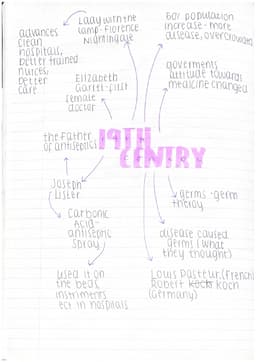 Lady with the
lamp-Florence
Nightingale
advances
clean
hospitals,
better trained
nurices,
better
care
60% population
increase - more
disease, overcrowded
goverments
attitude towards
medicine changed
Elizabeth
Garret-first
female
doctor
the father
of antiseptics
19TH
CENTRY
Joseph
Lister
Carbonic
Acid-
antiseptic
spray
used it on
the beds,
instriments
ect in hospitals
germs - germ
theroy
disease caused
germs (what
they thought)
Louis Pasteur (French)
Robert Koch
(Germany)